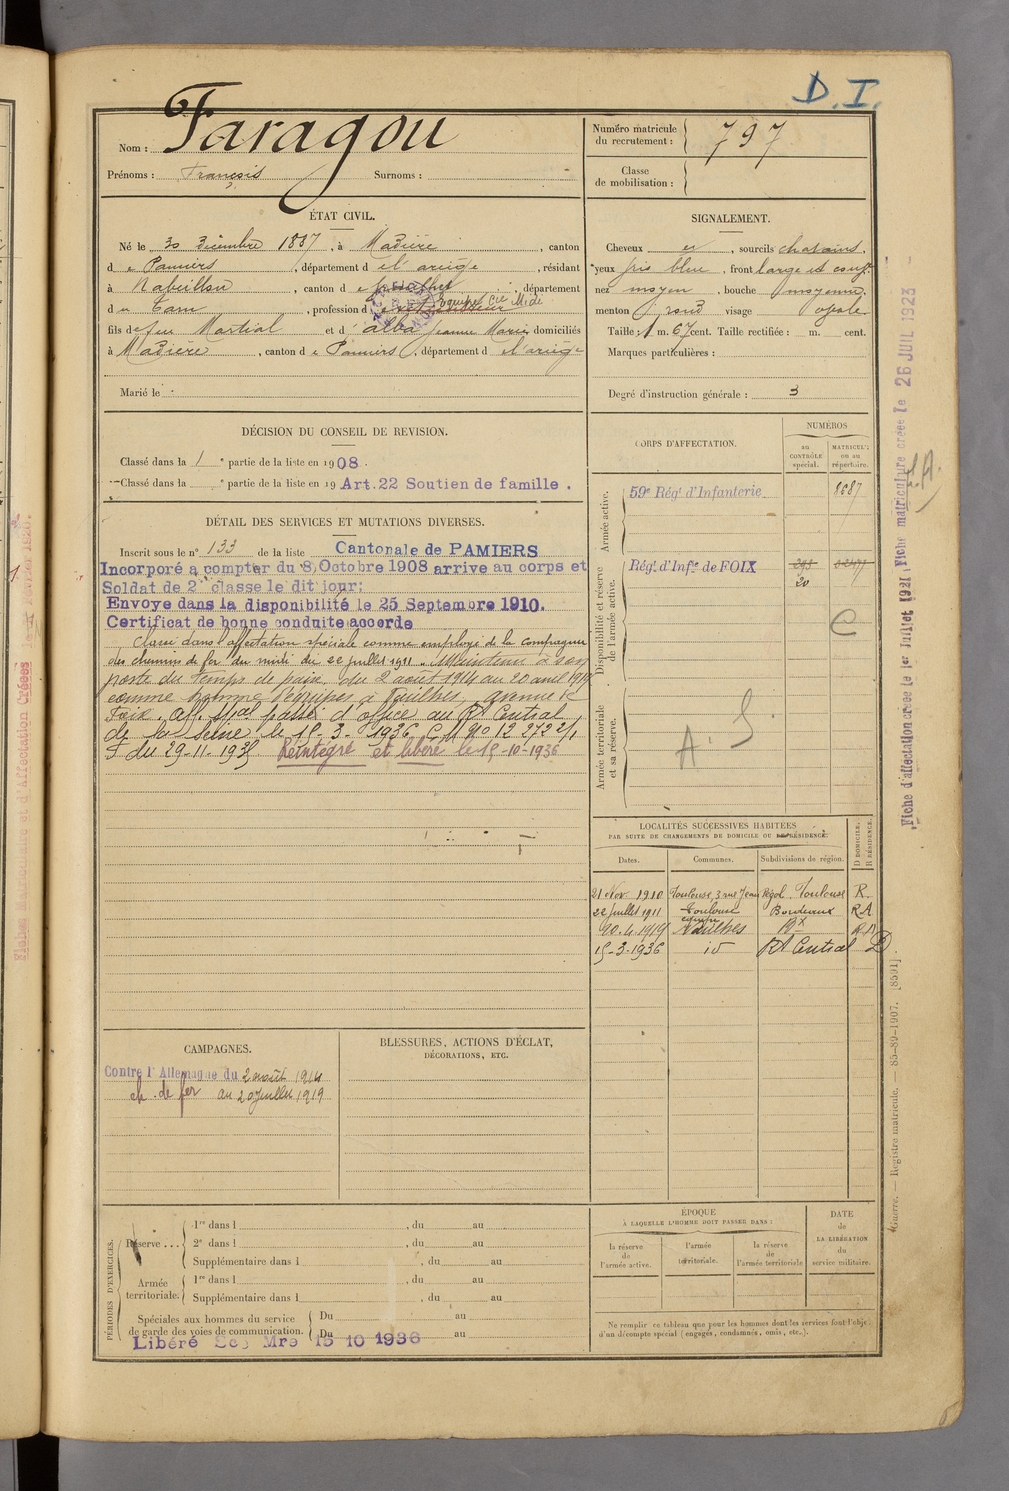 D. I.
Nom : Faragou
Prénoms : François Surnoms :
Numéro matricule du recrutement : 797
Classe de mobilisation :
ÉTAT CIVIL.
Né le 30 Décembre 1887, à Madière, canton
de Pamiers, département de l'ariège, résidant
à Nabeillou, canton d, département
du Tarn, profession d Equipe Cie Midi
fils de feu Martial et d' alba Jeanne Marie, domiciliés
à Madière, canton de Pamiers, département de l'ariège
Marié le
SIGNALEMENT.
Cheveux et, sourcils chatains,
yeux gris bleu, front large et
nez moyen, bouche moyenne,
menton rond visage ovale
Taille : 1 m. 67 cent. Taille rectifiée : m. cent.
Marques particulières :
Degré d'instruction générale : 3
DÉCISION DU CONSEIL DE REVISION.
Classé dans la 1 e partie de la liste en 1908.
Classé dans la e partie de la liste en 19 Art. 22 Soutien de famille.
DÉTAIL DES SERVICES ET MUTATIONS DIVERSES.
Inscrit sous le n° 133 de la liste Cantonale de PAMIERS
Incorporé à compter du 8 Octobre 1908 arrive au corps et
Soldat de 2e classe le dit jour;
Envoye dans la disponibilité le 25 Septembre 1910.
Certificat de bonne conduite accorde
Classé dans l'affectation spéciale comme employé de la compagnie
des chemins de fer du midi du 22 juillet 1911. Maintenu à son
poste du temps de paix du 2 août 1914 au 20 avril 1919
comme homme d'équipes à Vailhes, annexe
Foix. Aff. Spéc passé d'office au Rt Central
de la Seine le 15-3-1936 C.M. No 12 272 2/1
F du 29-11-1935 Réintégré et libéré le 15-10-1936
CORPS D'AFFECTATION.
NUMÉROS
au CONTRÔLE spécial.
MATRICULE ou au répertoire.
Armée active.
59e Régt d'Infanterie 8687
Disponibilité et réserve de l'armée active.
Régt d'Infie de FOIX 293
20
C
Armée territoriale et sa réserve.
A. S.
LOCALITÉS SUCCESSIVES HABITÉES
PAR SUITE DE CHANGEMENTS DE DOMICILE OU DE RÉSIDENCE.
Dates. Communes. Subdivisions de région. D DOMICILE. R RÉSIDENCE.
21 Nov. 1910 Toulouse, 3 rue Jean Régol. Toulouse R.
22 juillet 1911 Toulouse Bordeaux RA
20.4.1919 Vailhes Bx RA
15-3-1936 id Rt Central D
CAMPAGNES.
Contre l'Allemagne du 2 août 1914
ch. de fer au 20 juillet 1919
BLESSURES, ACTIONS D'ÉCLAT,
DÉCORATIONS, ETC.
PÉRIODES D'EXERCICES.
Réserve ...
1re dans l , du au
2e dans l , du au
Supplémentaire dans l , du au
Armée territoriale.
1re dans l , du au
Supplémentaire dans l , du au
Spéciales aux hommes du service de garde des voies de communication.
Du au
Du au
Libéré Mre 15 10 1936
ÉPOQUE
À LAQUELLE L'HOMME DOIT PASSER DANS :
la réserve de l'armée active.
l'armée territoriale.
la réserve de l'armée territoriale
DATE de LA LIBÉRATION du service militaire.
Ne remplir ce tableau que pour les hommes dont les services font l'objet
d'un décompte spécial (engagés, condamnés, omis, etc.).
Fiche matriculaire créée le 26 JUIL 1923
Fiche d'affectation créée le 1er Juillet 1921
Guerre. — Registre matricule. — 85-89-1907. [8591]